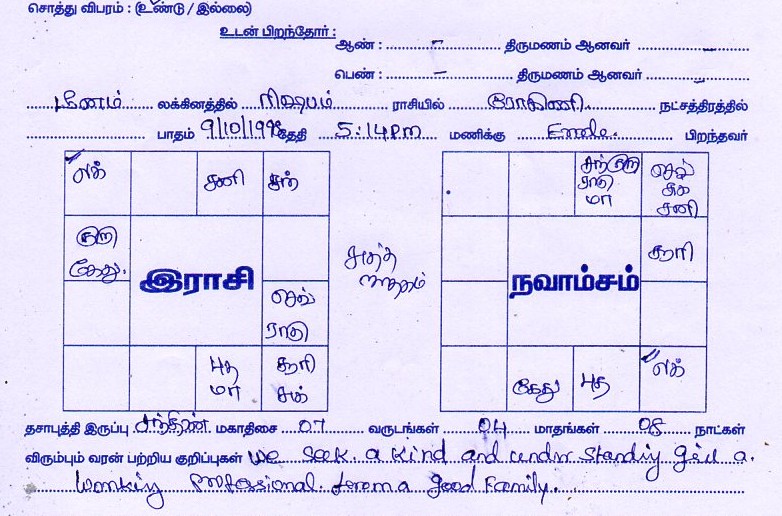 சொத்து விபரம் : (உண்டு / இல்லை)
உடன் பிறந்தோர் :
ஆண் : – திருமணம் ஆனவர் –
பெண் : – திருமணம் ஆனவர் –
மீனம் லக்கினத்தில் ரிஷபம் ராசியில் ரோகிணி நட்சத்திரத்தில்
பாதம் 9/10/1998 தேதி 5:14 PM மணிக்கு Erode. பிறந்தவர்
லக் சனி சந்
குரு கேது.
இராசி
செவ் ராகு
புத மா சூரி சுக்
சுத்த ஜாதகம்
சந் குரு ராகு மா செவ் சுக சனி
சூரி
நவாம்சம்
கேது புத லக்
தசாபுத்தி இருப்பு சந்திரன் மகாதிசை 07 வருடங்கள் 04 மாதங்கள் 08 நாட்கள்
விரும்பும் வரன் பற்றிய குறிப்புகள் we seek a kind and understandiy girl a
working professional. from a good Family.